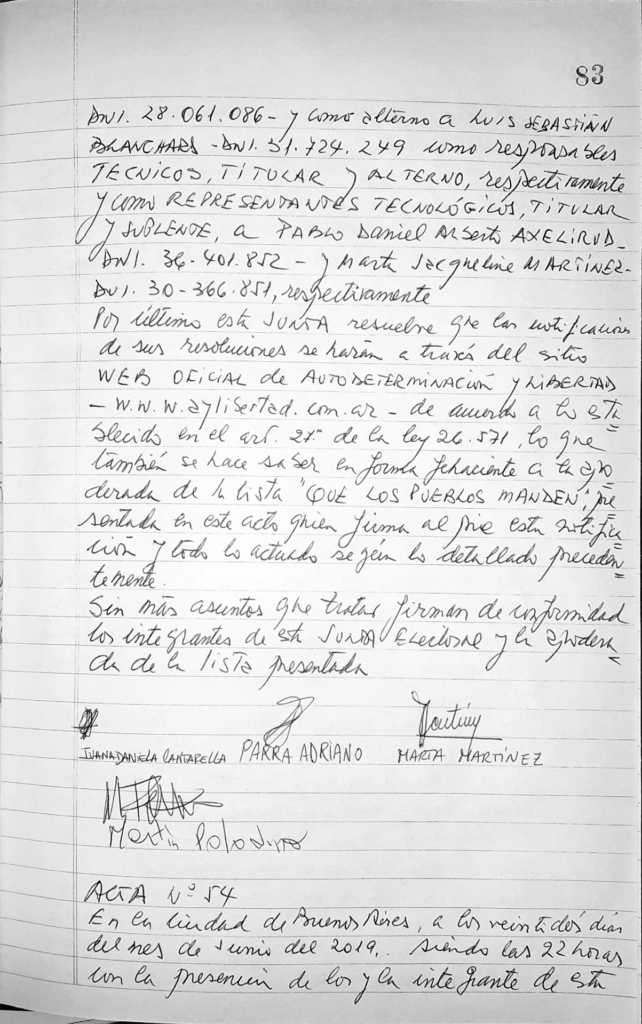 83
DNI. 28.061.086 - y como alterno a LUIS SEBASTIÁN
BLANCHARD - DNI. 31.724.249 como responsables
TECNICOS, TÍTULAR y ALTERNO, respectivamente
y como REPRESENTANTES TECNOLÓGICOS, TÍTULAR
y SUPLENTE, a PABLO Daniel Alberto AXELIRUD -
DNI. 36.401.852 - y Marta Jacqueline MARTÍNEZ -
DNI. 30-366.851, respectivamente
Por último esta JUNTA resuelve que las notificaciones
de sus resoluciones se harán a través del sitio
WEB OFICIAL de AUTODETERMINACIÓN y LIBERTAD
- w.w.w.aylibertad.com.ar - de acuerdo a lo esta
blecido en el art. 27º de la ley 26.571, lo que
también se hace saber en forma fehaciente a la apo
derada de la lista "QUE LOS PUEBLOS MANDEN", pre
sentada en este acto quien firma al pie esta notifica
ción y todo lo actuado según lo detallado preceden
temente.
Sin más asuntos que tratar firman de conformidad
los integrantes de esta JUNTA Electoral y la apodera
da de la lista presentada
JUANA DANIELA CANTARELLA PARRA ADRIANO MARTA MARTÍNEZ
Martin
ACTA Nº 54
En la Ciudad de Buenos Aires, a los veintidós días
del mes de Junio del 2019, siendo las 22 horas
con la presencia de los y la integrante de esta